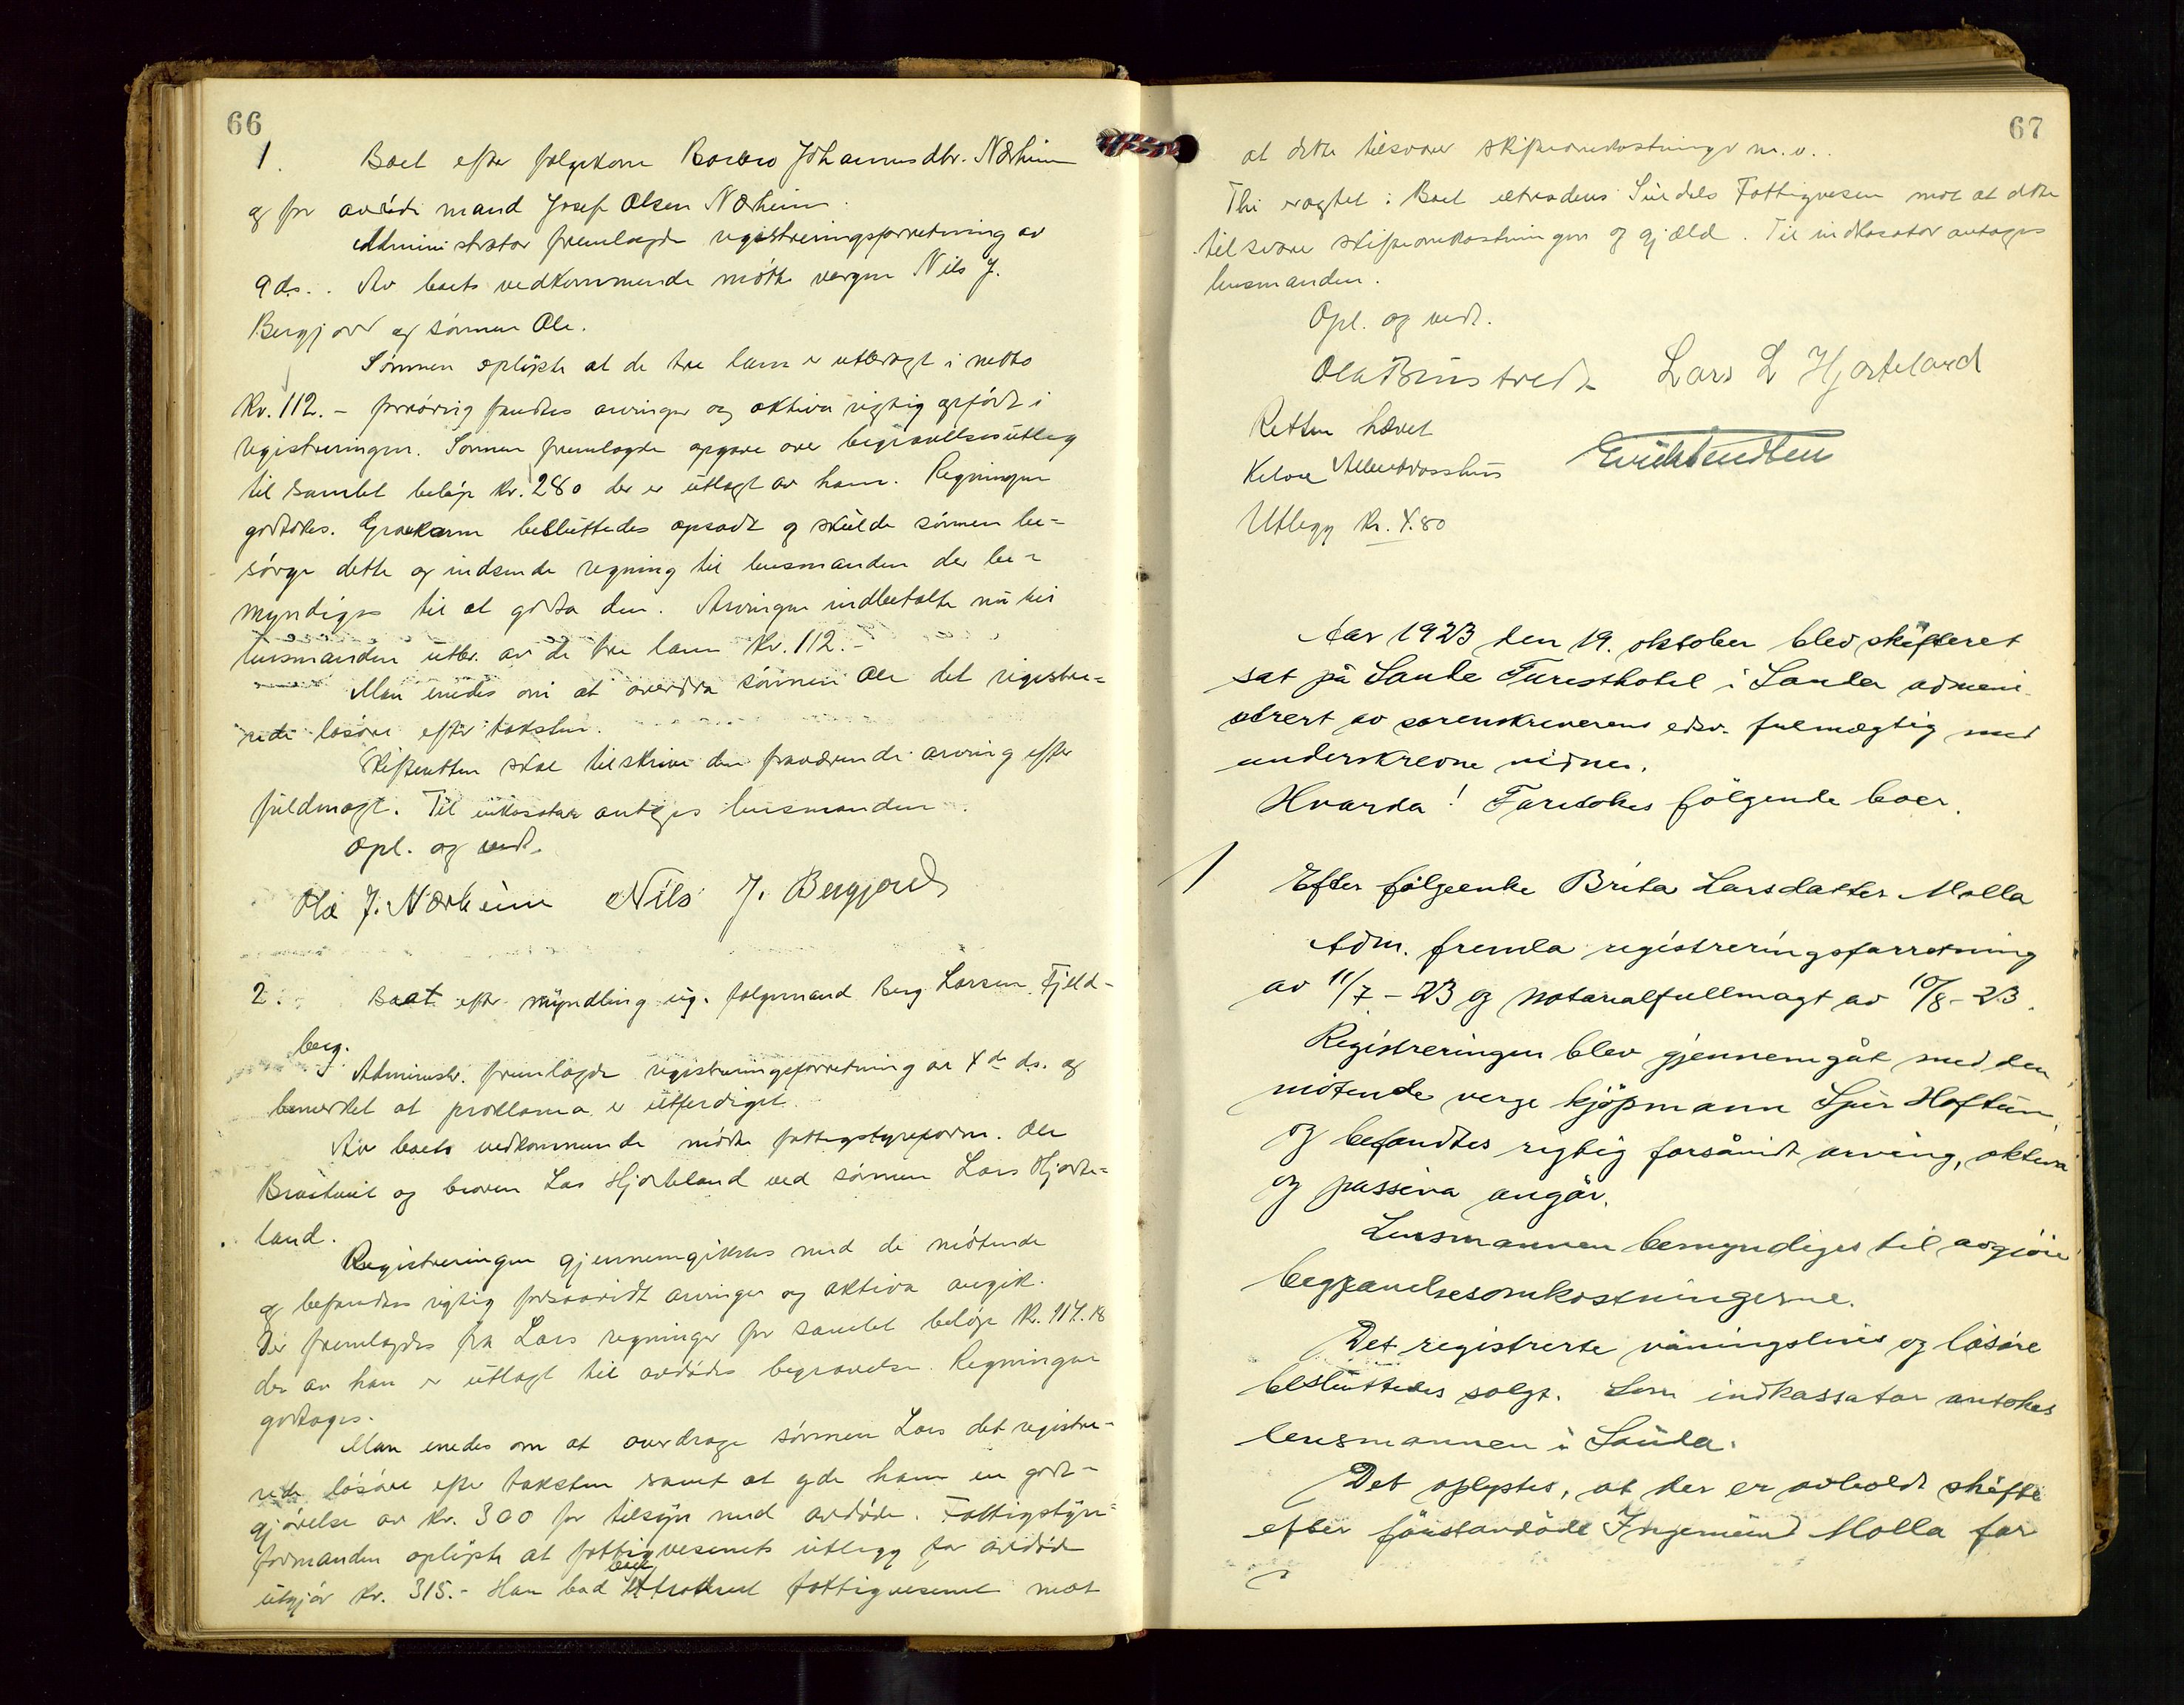 66
1. Boet efter følgekone Barbro Johannesdtr. Nærheim
og før avdøde mand Josef Olsen Nærheim.
Administrator fremlagde registreringsforretning av
9 ds.. Av boets vedkommende møtte vergen Nils J.
Bergjord og sønnen Ole.
Sønnen oplyste at de tre lam er utbragt i netto
Kr. 112.- forøvrig fandtes arvinger og aktiva rigtig opført i
registreringen. Sønnen fremlagde opgave over begravelsesutlæg
til samlet beløp kr. 280 der er utlagt av ham. Regningen
godtokes. Gravkarm besluttedes opsadt og skulde sønnen be=
sørge dette og indsende regning til lensmanden der be=
myndiges til at godta den. Arvingen indbetalte nu til
lensmanden utbr. av de tre lam kr. 112.-
Man enedes om at overdra sønnen Ole det registre=
rede løsøre efter taksten.
Skifteretten skal tilskrive den fraværende arving efter
fuldmagt. Til inkasator antages lensmanden.
Opl. og vedt.
Ole J. Nærheim Nils J. Bergjord
2. Boet efter myndling ug. følgemand Berg Larsen Fjeld-
berg.
Administr. fremlagde registreringsforretning av 4de ds. og
bemerket at proklama er utferdiget.
Av boets vedkommende møtte fattigstyreform. Ole
og broren Lars Hjorteland ved sønnen Lars Hjorte=
land.
Registreringen gjennemgikkes med de møtende
og befandtes rigtig forsaavidt arvinger og aktiva angik.
Der fremlagdes fra Lars regninger for samlet beløp kr. 114.18
der av han er utlagt til avdødes begravelse. Regningene
godtoges.
Man enedes om at overdrage sønnen Lars det registre-
rede løsøre efter taksten samt at gide ham en godt-
gjørelse av kr. 300 for tilsyn med avdøde. Fattigstyre=
formanden oplyste at fattigvesenets utlegg for avdøde
utgjør kr. 315.- Han bad boet fattigvesenet mot
67
at dette tilsvarer skifteomkostninger m.v..
Thi eragtet: Boet utlades Suldals Fattigvesen mot at dette
tilsvare skifteomkostningen og gjæld. Til indkasator antages
lensmanden.
Opl. og vedt.
Ola Lars L Hjorteland
Retten hævet
Utlegg kr. 4.80
Aar 1923 den 19. oktober blev skifteret
sat på Sauda Turisthotel i Sauda admini-
strert av sorenskriverens edsv. fulmægtig med
underskrevne vidner.
Hvorda! Foretokes følgende boer.
1 Efter følgeenke Brita Larsdatter Molla
Adm. fremla registreringsforretning
av 11/7 - 23 og notarialfullmagt av 10/8 - 23.
Registreringen blev gjennemgåt med den
møtende verge kjøpmann Sjur Hoftun
og befandtes rigtig forsåvidt arving, aktiva
og passiva angår.
Lensmannen bemyndiges til avgjøre
begravelsesomkostningerne.
Det registrerte våningshus og løsøre
besluttedes solgt. Som indkassator antokes
lensmannen i Sauda.
Det oplystes, at der er avholdt skifte
efter førstavdøde Ingemund Molla for